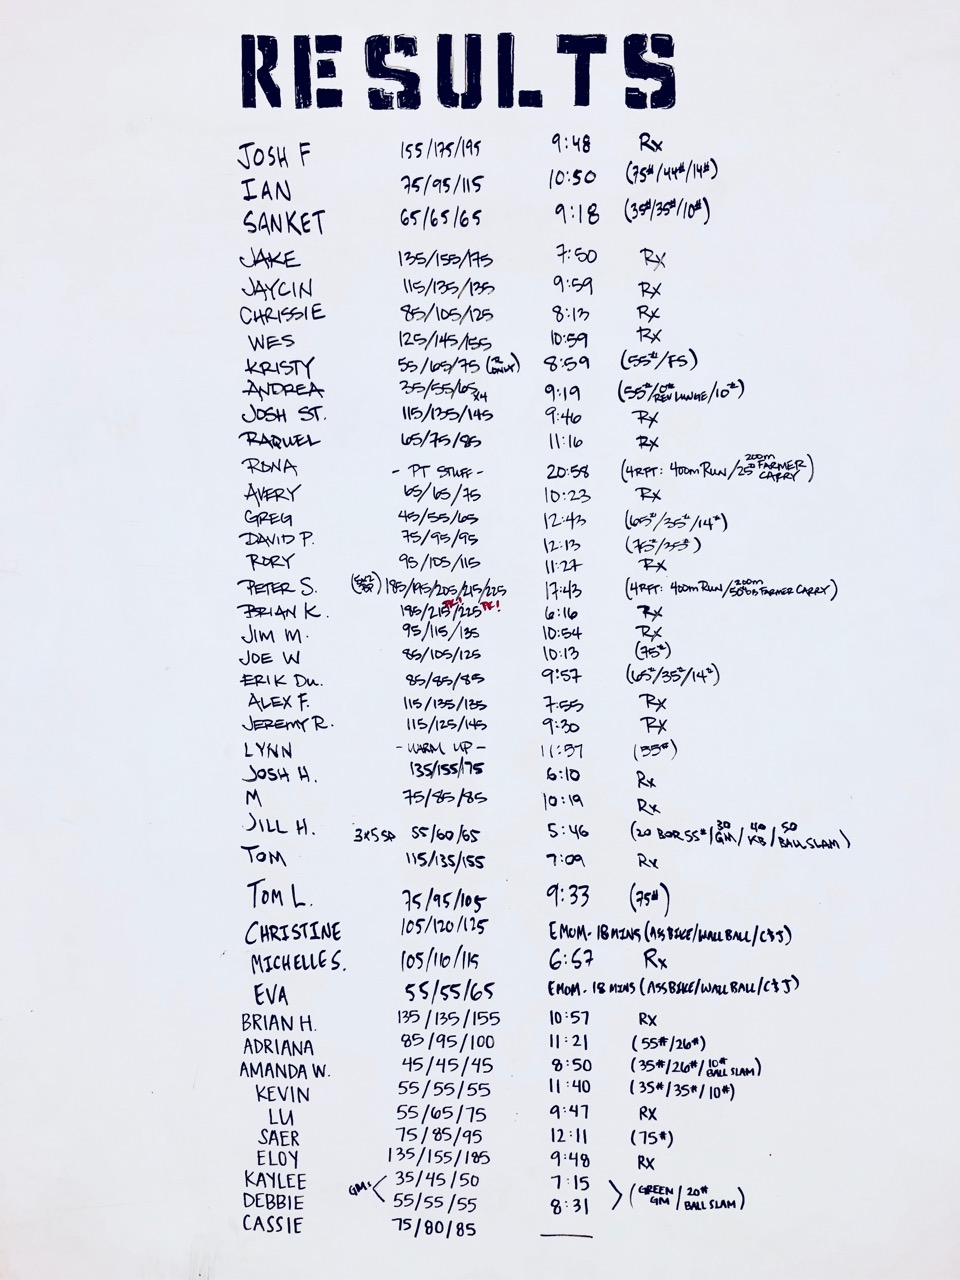 RESULTS
JOSH F 155/175/195 9:48 Rx
IAN 75/95/115 10:50 (75#/44#/14#)
SANKET 65/65/65 9:18 (35#/35#/10#)
JAKE 135/155/175 7:50 Rx
JAYCIN 115/135/135 9:59 Rx
CHRISSIE 85/105/125 8:13 Rx
WES 125/145/155 10:59 Rx
KRISTY 55/65/75 (2 ONLY) 8:59 (55#/FS)
ANDREA 35/55/65 x4 9:19 (55#/0# REV LUNGE/10#)
JOSH ST. 115/135/145 9:46 Rx
RAQUEL 65/75/85 11:16 Rx
RONA - PT STUFF - 20:58 (4RFT: 400m RUN/200m 25# FARMER CARRY)
AVERY 65/65/75 10:23 Rx
GREG 45/55/65 12:43 (65#/35#/14#)
DAVID P. 75/95/95 12:13 (75#/35#)
RORY 95/105/115 11:27 Rx
PETER S. 185/195/205/215/225 17:43 (4RFT: 400m RUN/200m 50#DB FARMER CARRY)
BRIAN K. 195/215 PR!/225 PR! 6:16 Rx
JIM M. 95/115/135 10:54 Rx
JOE W 85/105/125 10:13 (75#)
ERIK DU. 85/85/85 9:57 (65#/35#/14#)
ALEX F. 115/135/135 7:55 Rx
JEREMY R. 115/125/145 9:30 Rx
LYNN - WARM UP - 11:57 (55#)
JOSH H. 135/155/175 6:10 Rx
M 75/85/85 10:19 Rx
JILL H. 3x5 SP 55/60/65 5:46 (20 BOR 55#/30 GM/40 KB/50 BALL SLAM)
TOM 115/135/155 7:09 Rx
TOM L. 75/95/105 9:33 (75#)
CHRISTINE 105/120/125 EMOM- 18 MINS (ASSBIKE/WALL BALL/C&J)
MICHELLE S. 105/110/115 6:57 Rx
EVA 55/55/65 EMOM- 18 MINS (ASSBIKE/WALL BALL/C&J)
BRIAN H. 135/135/155 10:57 Rx
ADRIANA 85/95/100 11:21 (55#/26#)
AMANDA W. 45/45/45 8:50 (35#/26#/10# BALL SLAM)
KEVIN 55/55/55 11:40 (35#/35#/10#)
LU 55/65/75 9:47 Rx
SAER 75/85/95 12:11 (75#)
ELOY 135/155/185 9:48 Rx
KAYLEE GM: 35/45/50 7:15 (GREEN GM/20# BALL SLAM)
DEBBIE 55/55/55 8:31
CASSIE 75/80/85